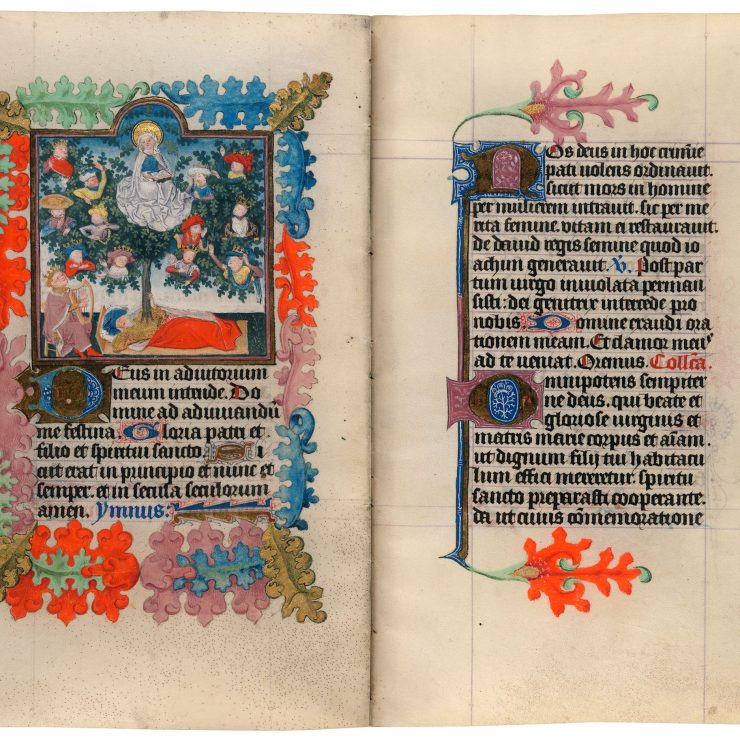 Deus in adiutorium
meum intende. Do
mine ad adiuuandū
me festina Gloria patri et
filio et spiritui sancto Si
cut erat in principio et nunc et
semper. et in secula seculorum
amen. Ymnus:
Nos deus in hoc crimīe
pati uolens ordinauit.
sicut mors in homine
per mulierem intrauit. sic per me
rita femine. vitam ei restaurauit.
de dauid regis semine quod io
achim generauit. V. Post par
tum uirgo inuiolata perman
sisti: dei genitrix intercede pro
nobis Domine exaudi ora
tionem meam. Et clamor meus
ad te ueniat. Oremus. Collēa.
Omnipotens sempiter
ne deus. qui beate et
gloriose uirginis et
matris marie corpus et aīam.
ut dignum filij tui habitacu
lum effici mereretur. spiritu
sancto preparasti cooperante.
da ut cuius cōmemoratione